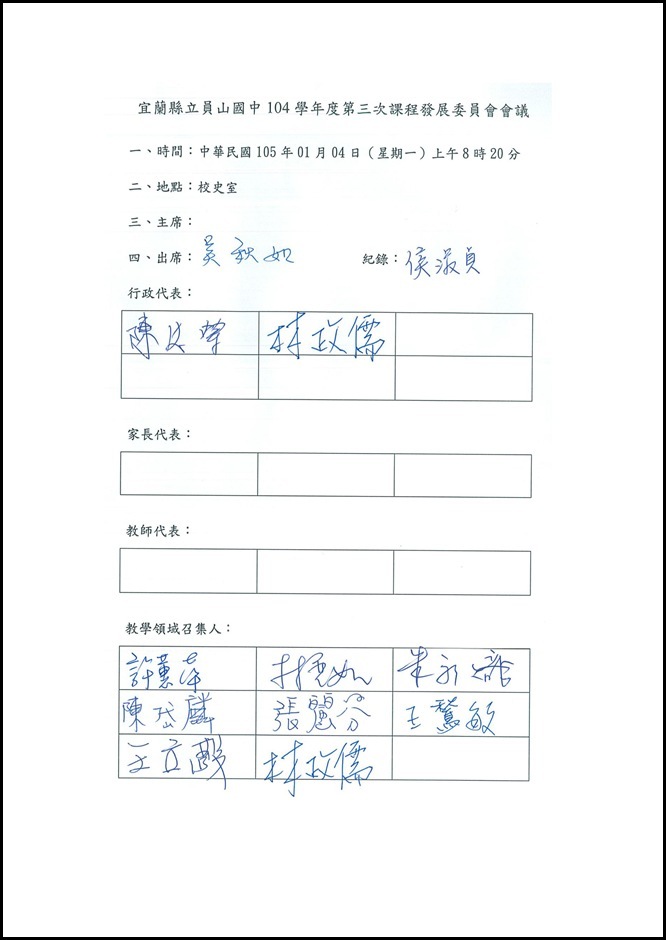 宜蘭縣立員山國中 104 學年度第三次課程發展委員會會議
一、時間：中華民國 105 年 01 月 04 日（星期一）上午 8 時 20 分
二、地點：校史室
三、主席：
四、出席：吳秋如 紀錄：侯淑貞
行政代表：
陳 林政儒
家長代表：
教師代表：
教學領域召集人：
許蕙萍
陳岱麟 張麗芬 王慧敏
王立 林政儒